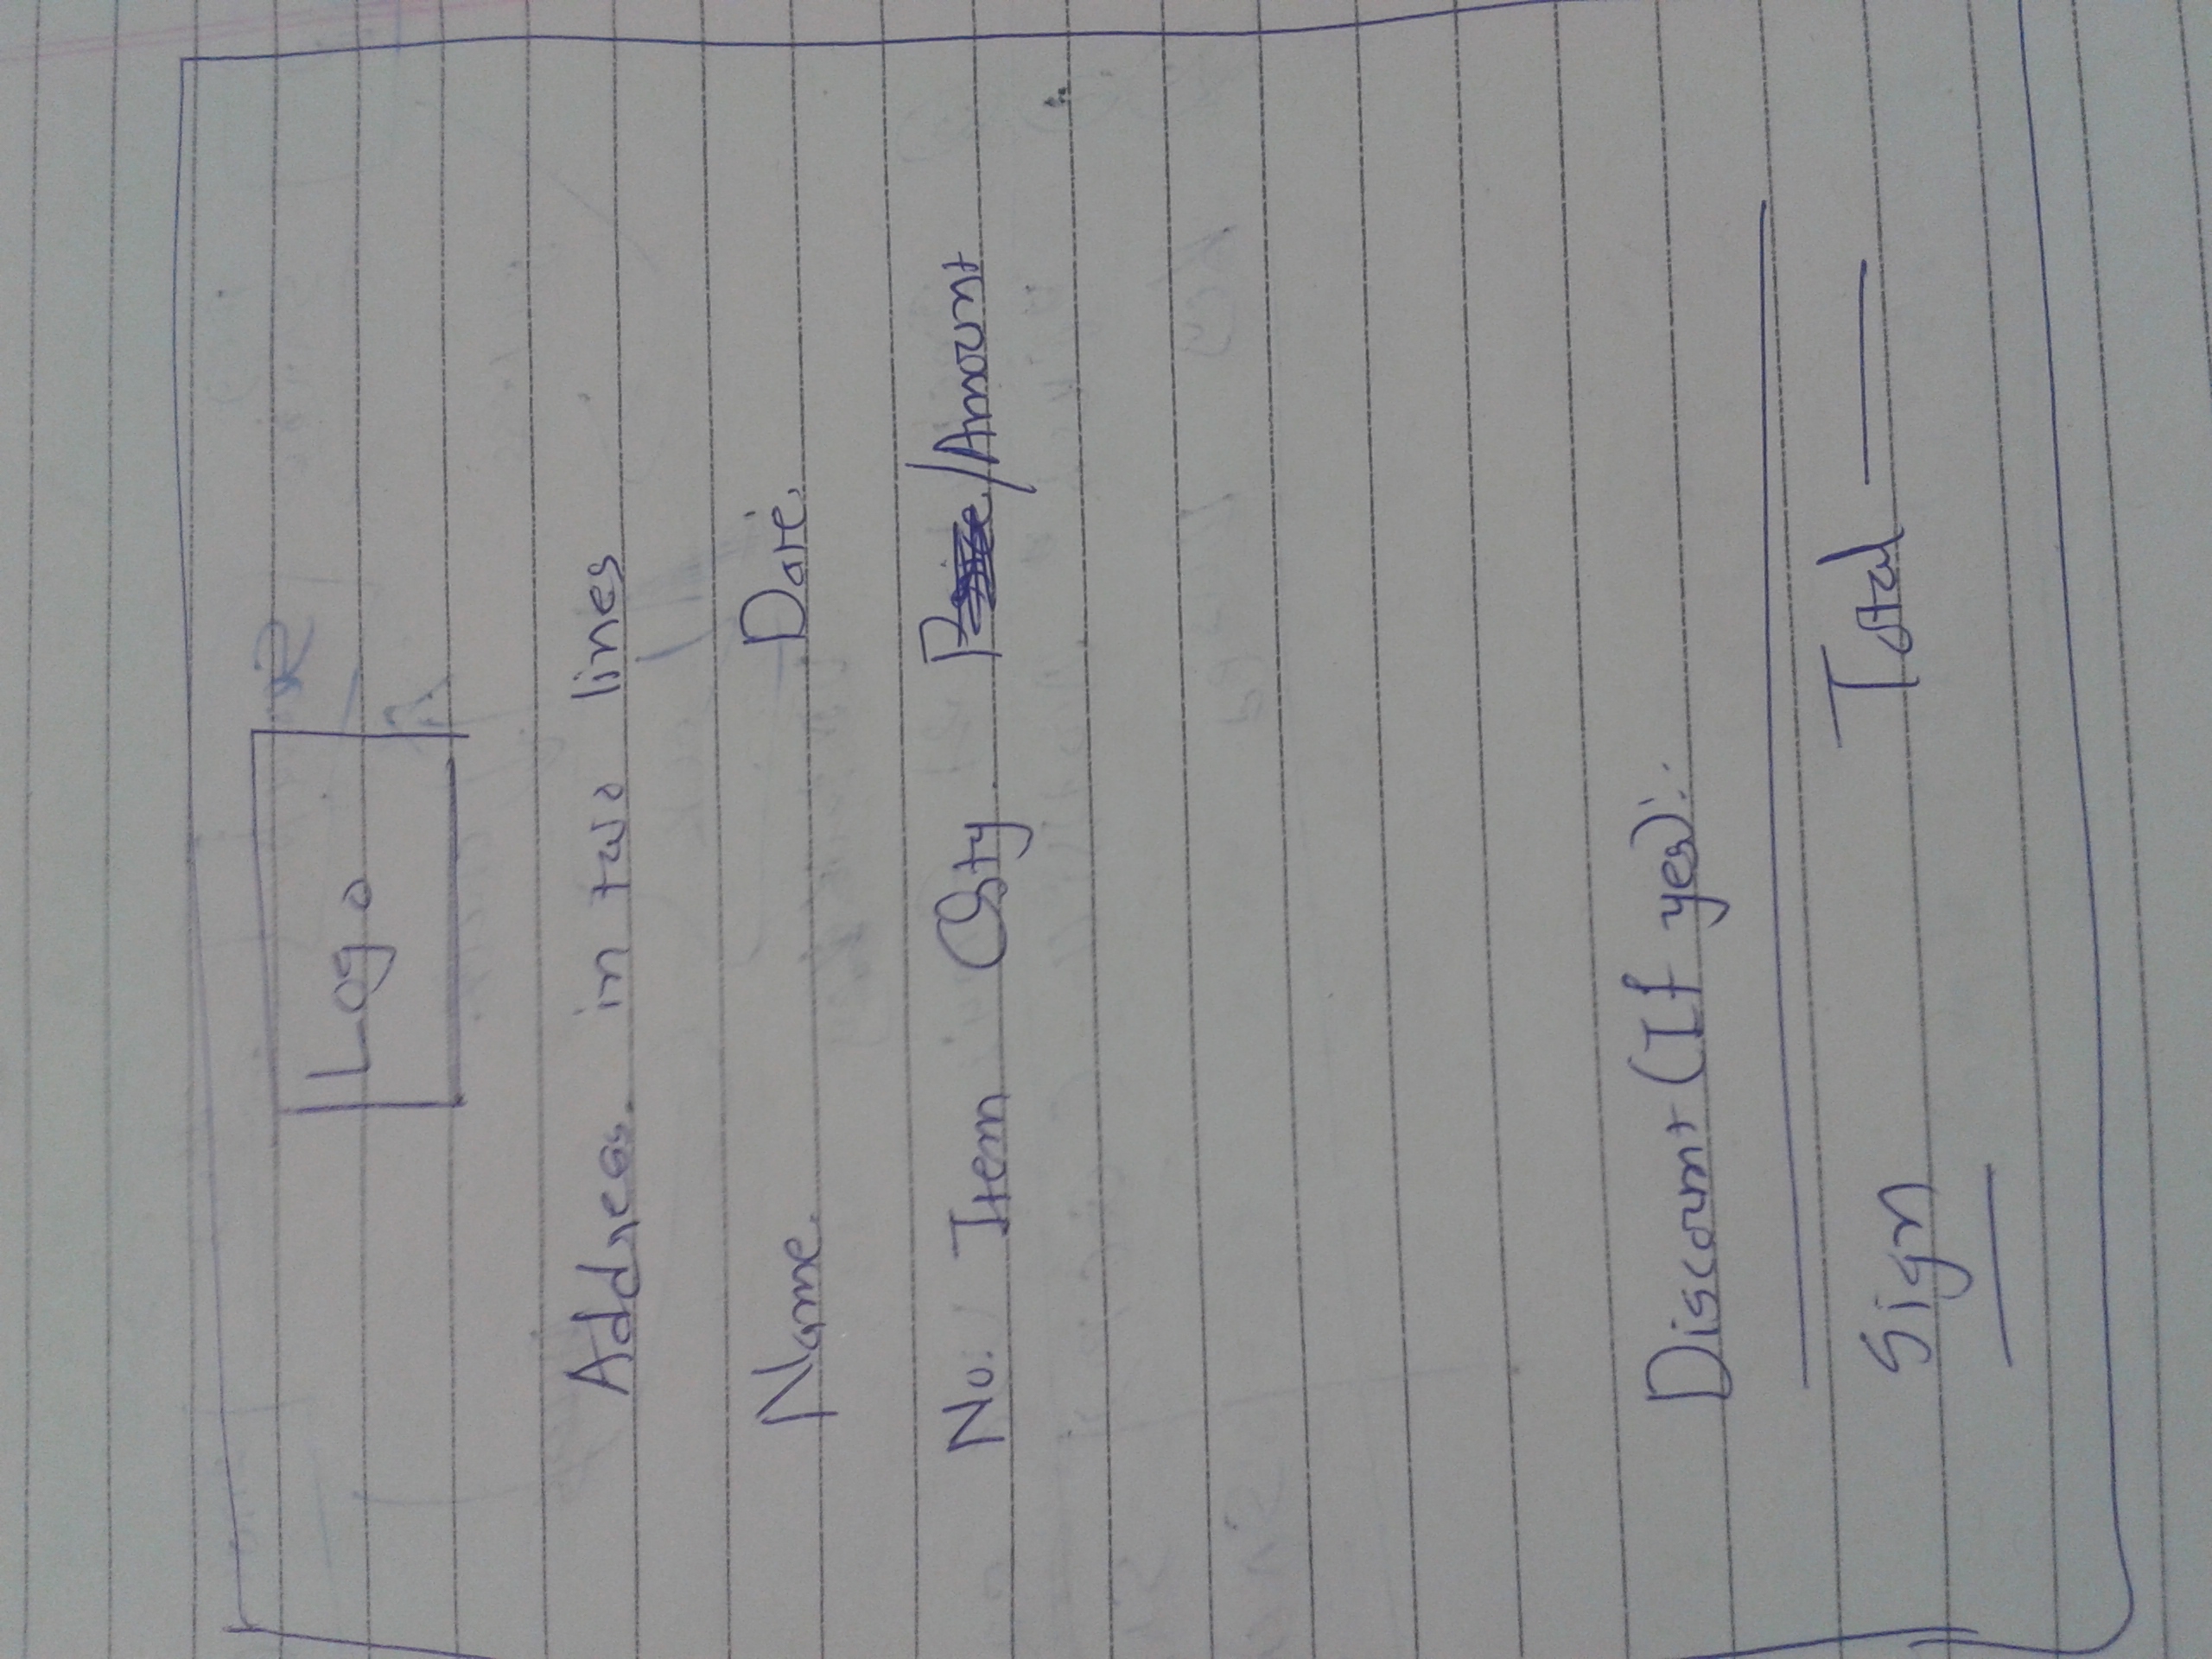 Logo
Address. in two lines
Name. Date.
No. Item Qty. Price/Amount
Discount (If yes):.
Total
Sign